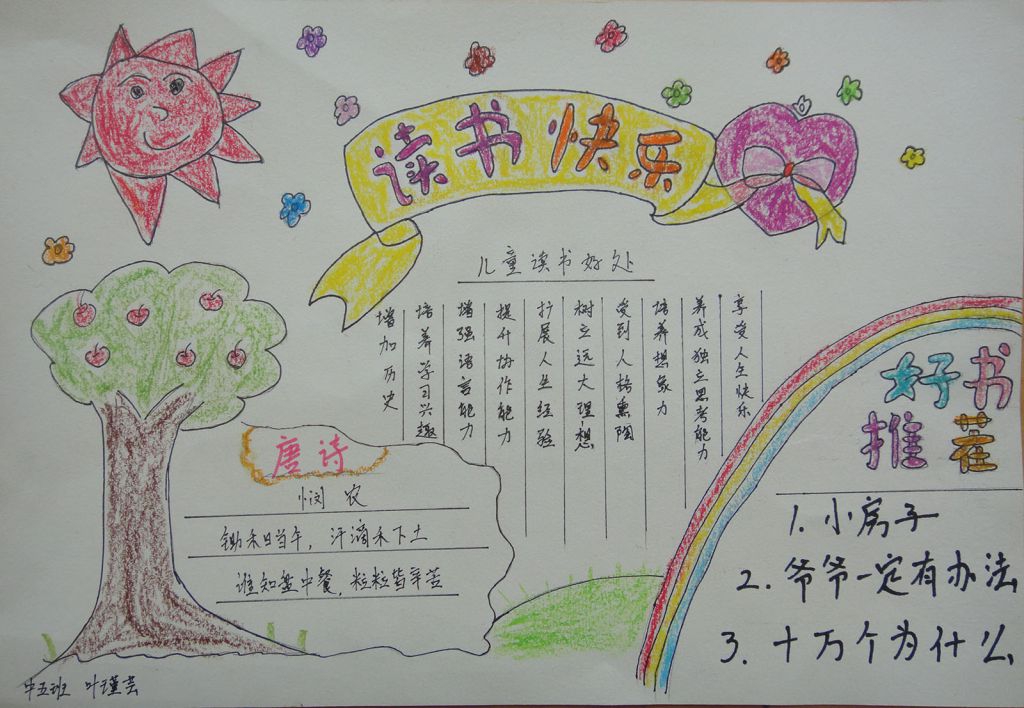 读书快乐
儿童读书好处
享受人生快乐
养成独立思考能力
培养想象力
受到人格熏陶
树立远大理想
扩展人生经验
提升协作能力
增强语言能力
培养学习兴趣
增加历史
唐诗
悯农
锄禾日当午，汗滴禾下土
谁知盘中餐，粒粒皆辛苦
好书
推荐
1. 小房子
2. 爷爷一定有办法
3. 十万个为什么
中五班 叶瑾芸